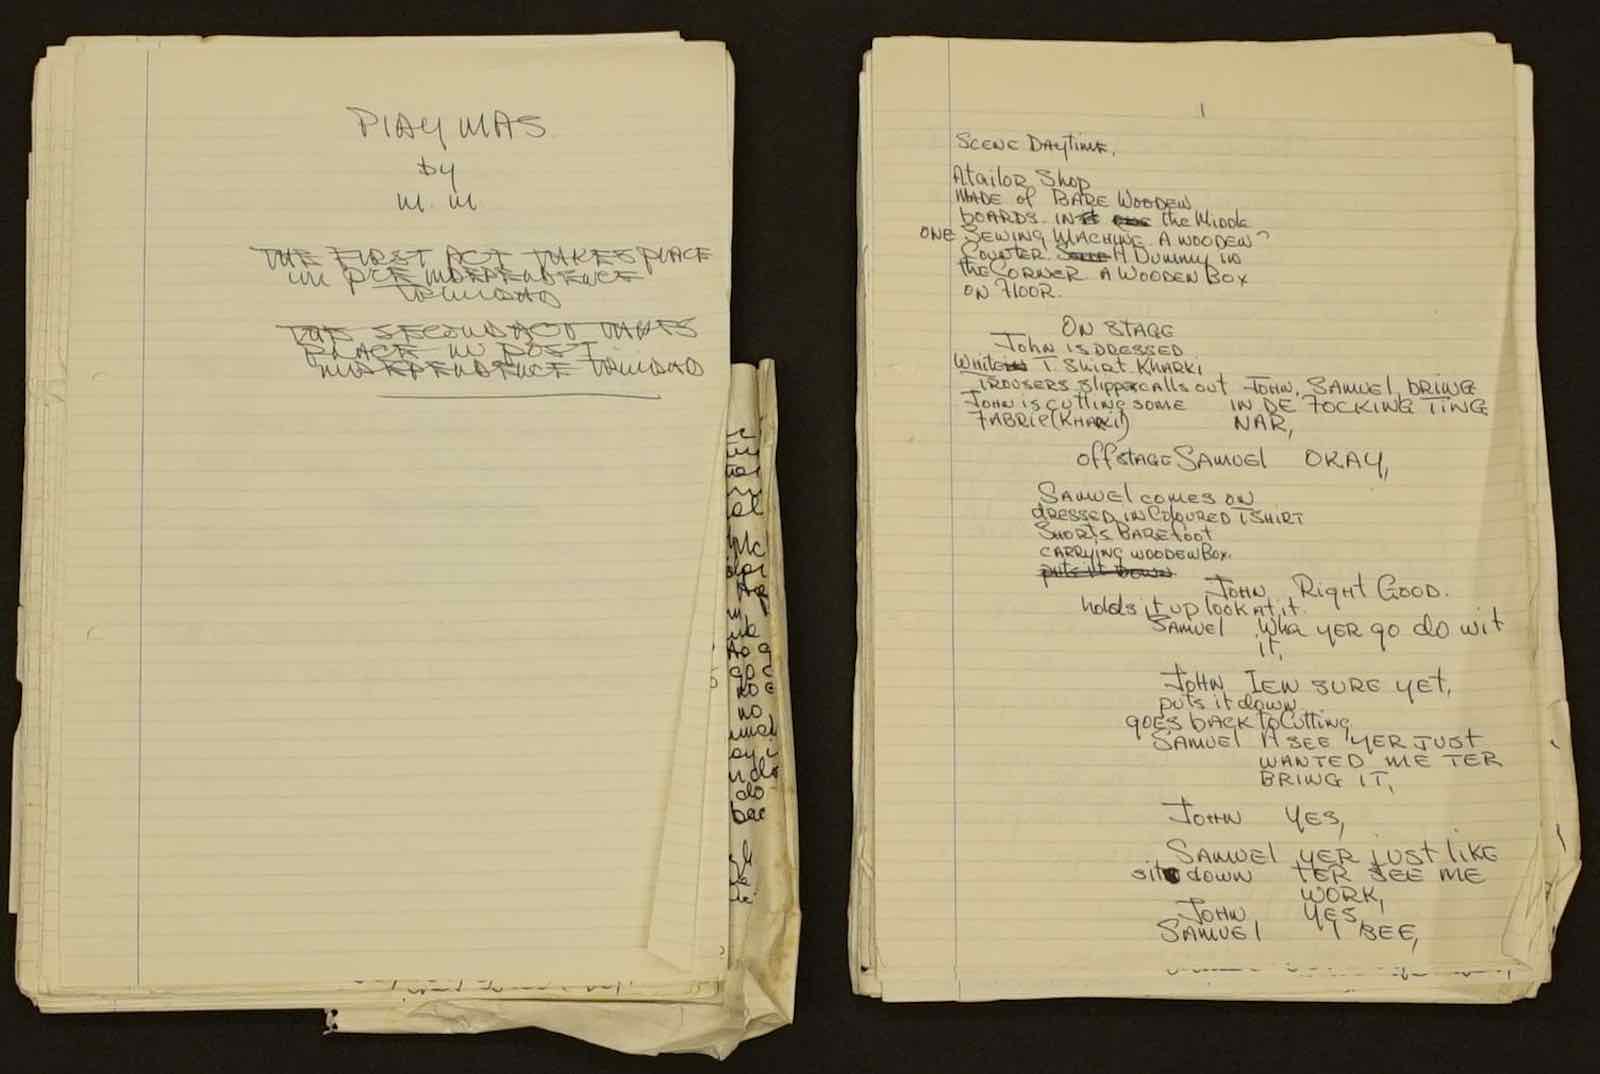 PLAY MAS
by
M. M
THE FIRST ACT TAKES PLACE
IN PRE INDEPENDENCE
TRINIDAD
THE SECOND ACT TAKES
PLACE IN POST
INDEPENDENCE TRINIDAD
1
SCENE DAYTIME,
A tailor Shop
MADE of BARE WOODEN
boards. IN the Middle
ONE SEWING MACHINE. A WOODEN
COUNTER. A Dummy in
the CORNER. A WOODEN BOX
ON FLOOR.
ON STAGE
John IS DRESSED
White T SHIRT KHARKI
TROUSERS Slipper calls out JOHN, SAMUEL, bring
JOHN is cutting some IN DE FOCKING TING
FABRIC (KHARKI) NAR,
off STAGE SAMUEL OKAY,
SAMUEL comes ON
dressed in Coloured T SHIRT
SHORTS BAREfoot
CARRYING WOODEN Box.
puts it down
JOHN Right Good.
holds it up look at it.
SAMUEL Wha yer go do wit
it,
JOHN IEN SURE yet,
puts it down
goes back to Cutting,
SAMUEL A SEE YER JUST
WANTED ME TER
BRING IT,
JOHN YES,
SAMUEL YER just like
sit down TER SEE ME
WORK,
JOHN YES,
SAMUEL I SEE,